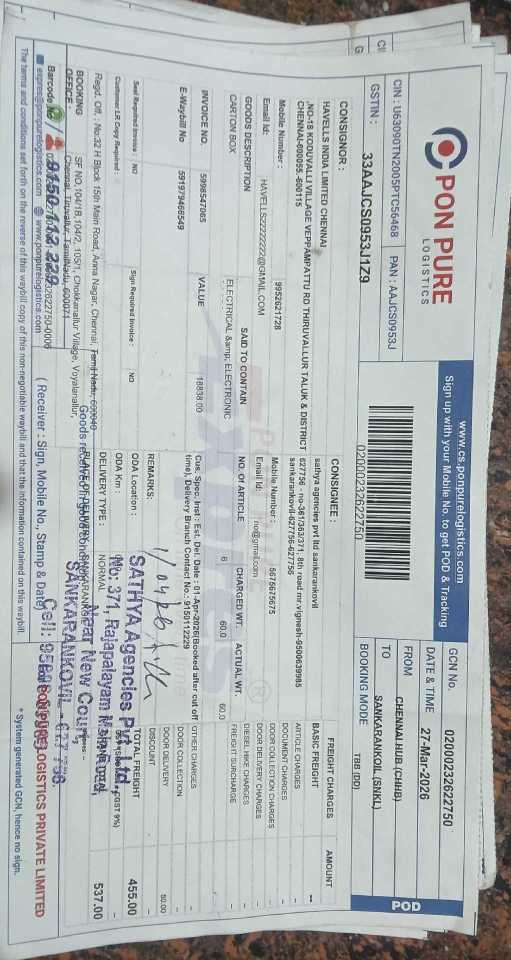 PON PURE
LOGISTICS
www.cs.ponpurelogistics.com
Sign up with your Mobile No. to get POD & Tracking
CIN : U63090TN2005PTC56468 PAN : AAJCS0953J
GSTIN : 33AAJCS0953J1Z9
02000232622750
GCN No. 02000232622750
DATE & TIME 27-Mar-2026
FROM CHENNAI HUB (CHHB)
TO SANKARANKOIL (SNKL)
BOOKING MODE TBB (DD)
POD
CONSIGNOR :
HAVELLS INDIA LIMITED CHENNAI
,NO-18 KODUVALLI VILLAGE VEPPAMPATTU RD THIRUVALLUR TALUK & DISTRICT
CHENNAI-600055.-600115
Mobile Number : 9952621728
Email Id: HAVELLS2222222@GMAIL.COM
CONSIGNEE :
sathya agencies pvt ltd sankarankovil
627756 - no-361/363/371. 8th road mr.vignesh-9500639985
sankarankovil-627756-627756
Mobile Number : 5675675675
Email Id: no@gmail.com
GOODS DESCRIPTION SAID TO CONTAIN NO. OF ARTICLE CHARGED WT. ACTUAL WT.
CARTON BOX ELECTRICAL &amp; ELECTRONIC 6 60.0 60.0
INVOICE NO. 5998547065 VALUE 18838.00
E-Waybill No 591979466549
Cus. Spec. Inst : Est. Del. Date : 01-Apr-2026(Booked after cut off
time), Delivery Branch Contact No.: 9150112229
REMARKS:
Seal Required Invoice : NO Sign Required Invoice : NO
Customer LR Copy Required :
ODA Location :
ODA Km :
DELIVERY TYPE : NORMAL
FREIGHT CHARGES AMOUNT
BASIC FREIGHT --
ARTICLE CHARGES
DOCUMENT CHARGES
DOOR COLLECTION CHARGES
DOOR DELIVERY CHARGES
DIESEL HIKE CHARGES -
FREIGHT SURCHARGE -
OTHER CHARGES -
DOOR COLLECTION -
DOOR DELIVERY 50.00
DISCOUNT -
TOTAL FREIGHT 455.00
537.00
Regd. Off. : No:32 H Block 15th Main Road, Anna Nagar, Chennai, Tamil Nadu, 600040
BOOKING OFFICE : SF NO,104/1B,104/2, 105/1, Chokkanallur Village, Voyalanallur,
Chennai, Tiruvallur, TamilNadu, 600071
Goods received in good condition
SATHYA Agencies Pvt Ltd.,
No: 371, Rajapalayam Main Road,
Near New Court,
SANKARANKOVIL - 627 756.
9150 112 229
Barcode No
( Receiver : Sign, Mobile No., Stamp & Date)
PON PURE LOGISTICS PRIVATE LIMITED
expres@ponpurelogistics.com www.ponpurelogistics.com
The terms and conditions set forth on the reverse of this waybill copy of this non-negotiable waybill and that the information contained on this waybill.
* System generated GCN, hence no sign.